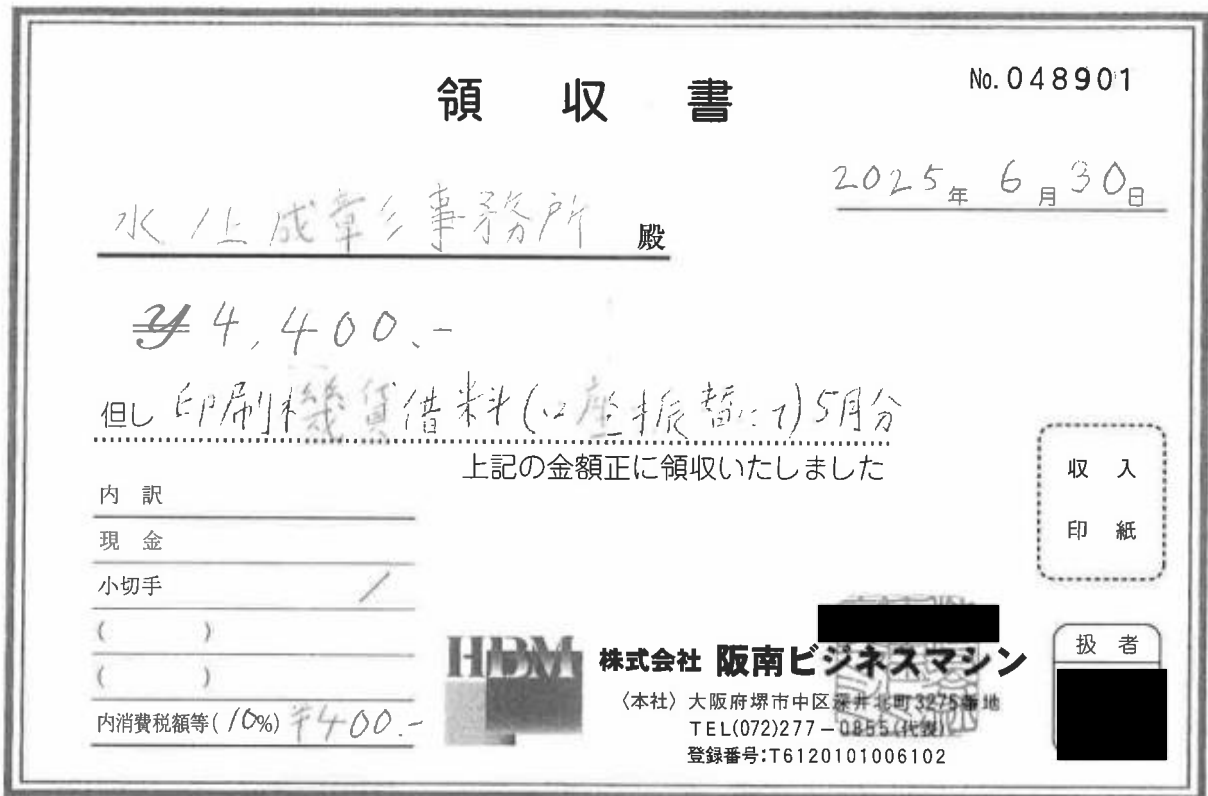 領 収 書
No.048901
2025年 6月30日
水ノ上成彰事務所 殿
¥4,400.-
但し 印刷機賃借料(口座振替にて)5月分
上記の金額正に領収いたしました
収 入
印 紙
内 訳
現 金
小切手 /
( )
( )
内消費税額等(10%) ¥400.-
HBM
株式会社 阪南ビジネスマシン
〈本社〉大阪府堺市中区深井北町3275番地
TEL(072)277-0855(代表)
登録番号:T6120101006102
扱 者